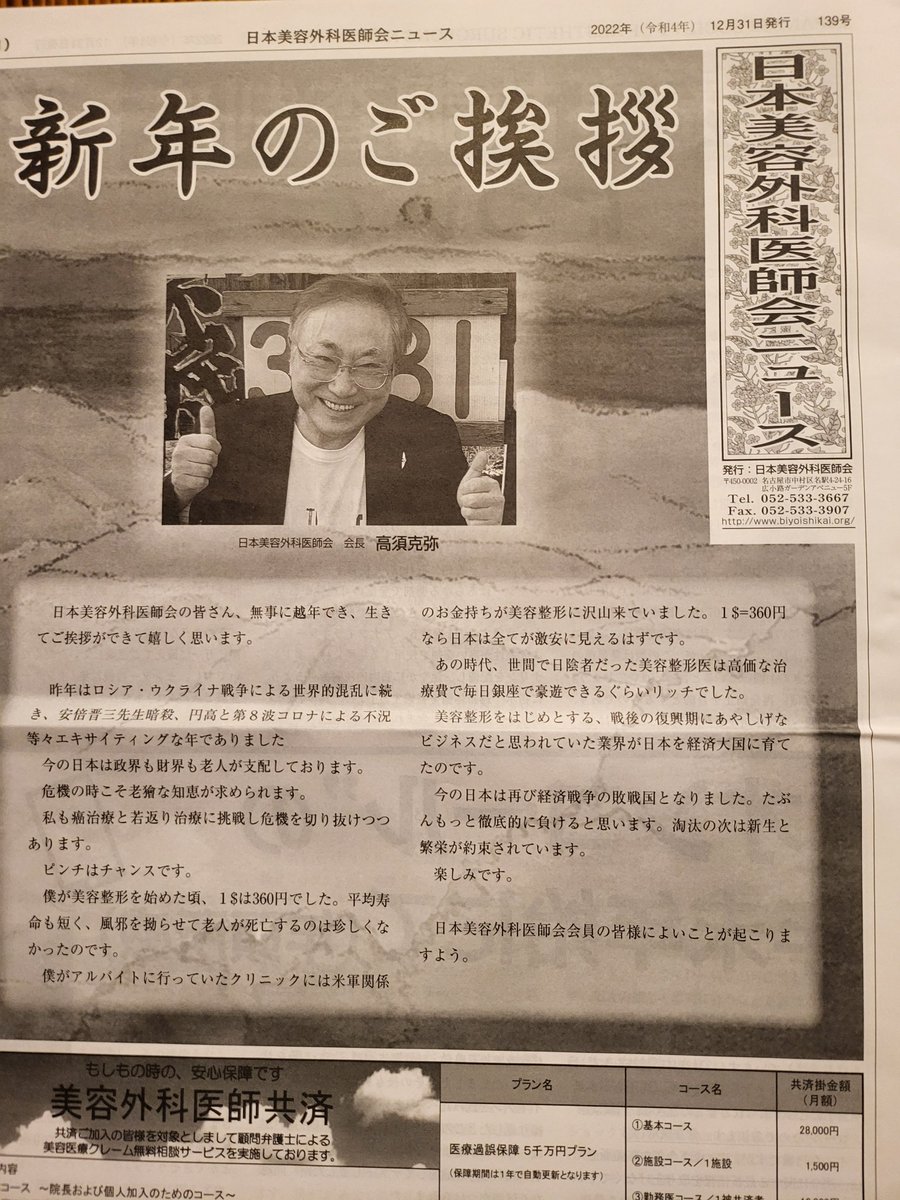 日本美容外科医師会ニュース
2022年（令和4年）　12月31日発行　139号
新年のご挨拶
日本美容外科医師会ニュース
発行：日本美容外科医師会
〒450-0002 名古屋市中村区名駅4-24-16
広小路ガーデンアベニュー5F
Tel. 052-533-3667
Fax. 052-533-3907
http://www.biyoishikai.org/
3 81
日本美容外科医師会　会長　高須克弥
日本美容外科医師会の皆さん、無事に越年でき、生き
てご挨拶ができて嬉しく思います。
昨年はロシア・ウクライナ戦争による世界的混乱に続
き、安倍晋三先生暗殺、円高と第８波コロナによる不況
等々エキサイティングな年でありました
今の日本は政界も財界も老人が支配しております。
危機の時こそ老獪な知恵が求められます。
私も癌治療と若返り治療に挑戦し危機を切り抜けつつ
あります。
ピンチはチャンスです。
僕が美容整形を始めた頃、１$は360円でした。平均寿
命も短く、風邪を拗らせて老人が死亡するのは珍しくな
かったのです。
僕がアルバイトに行っていたクリニックには米軍関係
のお金持ちが美容整形に沢山来ていました。１$=360円
なら日本は全てが激安に見えるはずです。
あの時代、世間で日陰者だった美容整形医は高価な治
療費で毎日銀座で豪遊できるぐらいリッチでした。
美容整形をはじめとする、戦後の復興期にあやしげな
ビジネスだと思われていた業界が日本を経済大国に育て
たのです。
今の日本は再び経済戦争の敗戦国となりました。たぶ
んもっと徹底的に負けると思います。淘汰の次は新生と
繁栄が約束されています。
楽しみです。
日本美容外科医師会会員の皆様によいことが起こりま
すよう。
もしもの時の、安心保障です
美容外科医師共済
共済ご加入の皆様を対象としまして顧問弁護士による
美容医療クレーム無料相談サービスを実施しております。
内容
コース　～院長および個人加入のためのコース～
プラン名　コース名　共済掛金額
（月額）
医療過誤保障 5千万円プラン
（保障期間は1年で自動更新となります）
①基本コース　28,000円
②施設コース／1施設　1,500円
③勤務医コース／1被共済者